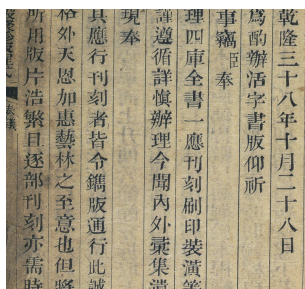 乾隆三十八年十月二十八日
為酌辦活字書版仰祈
事竊臣奉
理四庫全書一應刊刻刷印裝潢等
謹遵循詳慎辦理今聞內外彙集遺
現奉
具應行刊刻者皆令鐫版通行此誠
格外天恩加惠藝林之至意也但將
所用版片浩繁且逐部刊刻亦需時